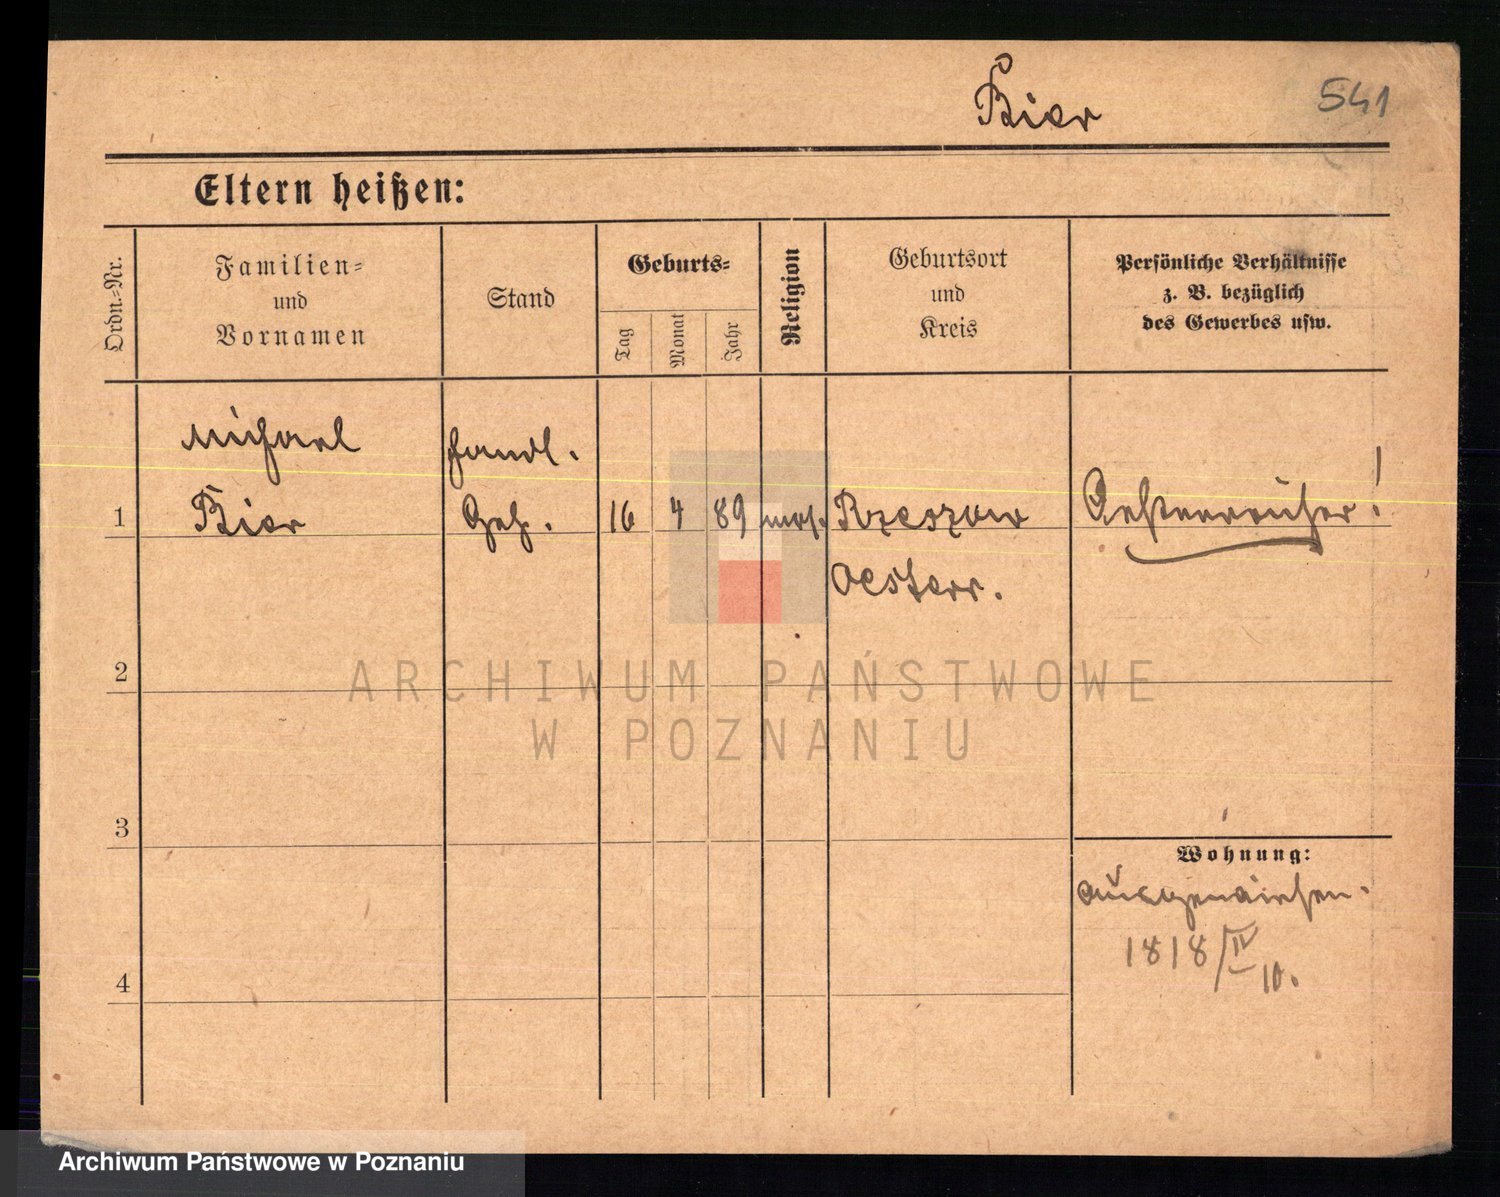 Bier
541
Eltern heißen:
Ordn.-Nr.
Familien-
und
Vornamen
Stand
Geburts-
Tag
Monat
Jahr
Religion
Geburtsort
und
Kreis
Persönliche Verhältnisse
z. B. bezüglich
des Gewerbes usw.
Michael Handl.
1 Bier Geh. 16 4 89 mos. Rzeszow Oesterreicher!
Oesterr.
2
ARCHIWUM PAŃSTWOWE
W POZNANIU
3
Wohnung:
ausgewiesen.
1818/IV 10.
4
Archiwum Państwowe w Poznaniu